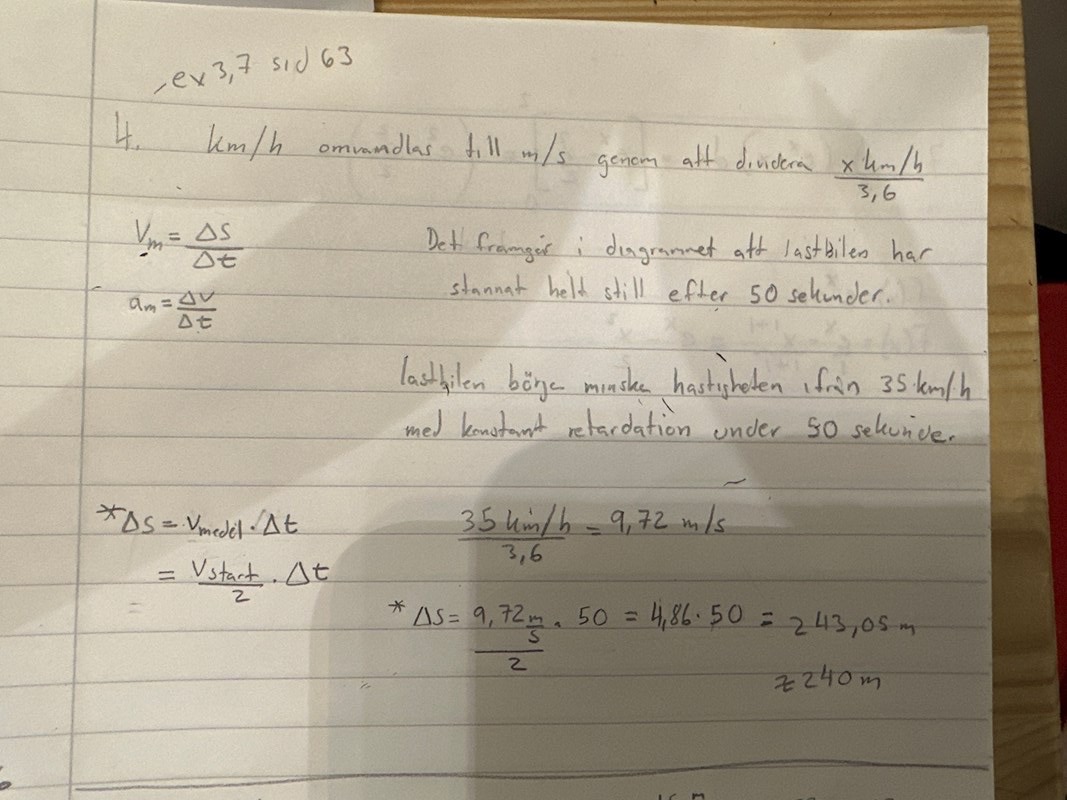 ex 3,7 sid 63
4. km/h omvandlas till m/s genom att dividera x km/h / 3,6
Vm = ΔS / Δt
Det framgår i diagrammet att lastbilen har
am = Δv / Δt
stannat helt still efter 50 sekunder.
lastbilen börje minske hastigheten ifrån 35 km/h
med konstant retardation under 50 sekunder.
*ΔS = Vmedel · Δt
35 km/h / 3,6 = 9,72 m/s
= Vstart / 2 · Δt
* ΔS = 9,72 m/s / 2 · 50 = 4,86 · 50 = 243,05 m
≈ 240 m